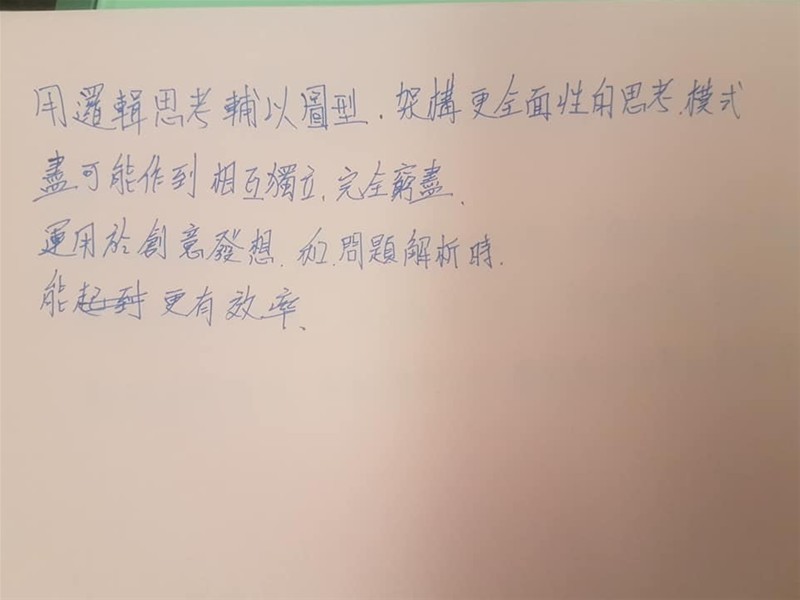 用邏輯思考輔以圖型,架構更全面性的思考模式
盡可能作到相互獨立,完全窮盡.
運用於創意發想.和.問題解析時.
能更有效率、